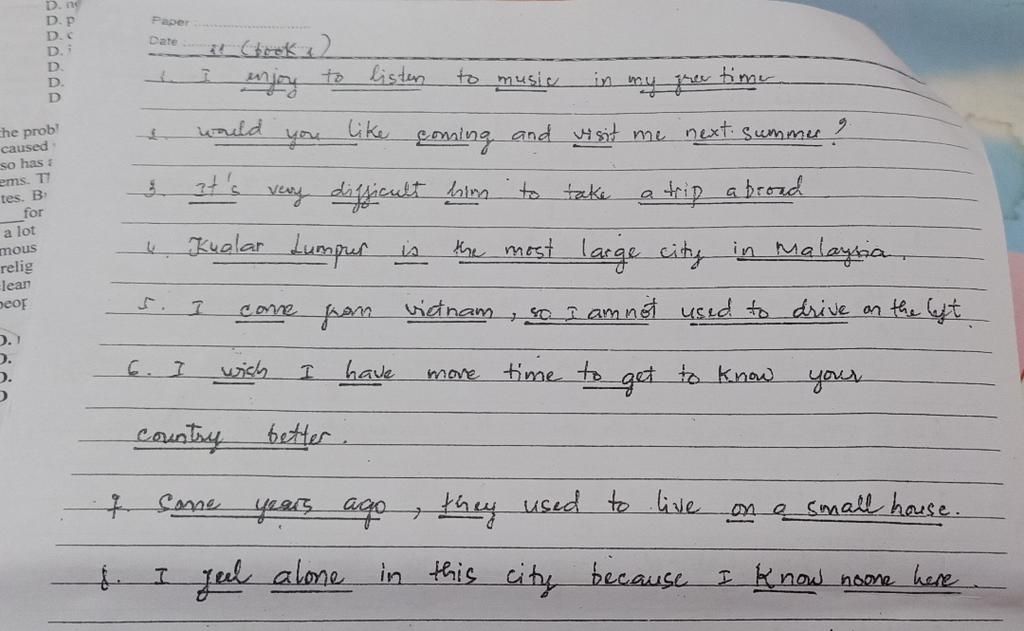 D.
D. p
D. c
D. i
D.
D.
D
the prob
caused
so has
ems. T
tes. B
___ for
a lot
mous
relig
lean
peop
D.
D.
D.
Paper
Date
II (book 1)
1. I enjoy to listen to music in my free time
2. would you like coming and visit me next summer?
3. It's very difficult him to take a trip abroad
4. Kualar Lumpur is the most large city in Malaysia.
5. I come from vietnam, so I am not used to drive on the left.
6. I wish I have more time to get to know your
country better.
7. Some years ago, they used to live on a small house.
8. I feel alone in this city because I know noone here.